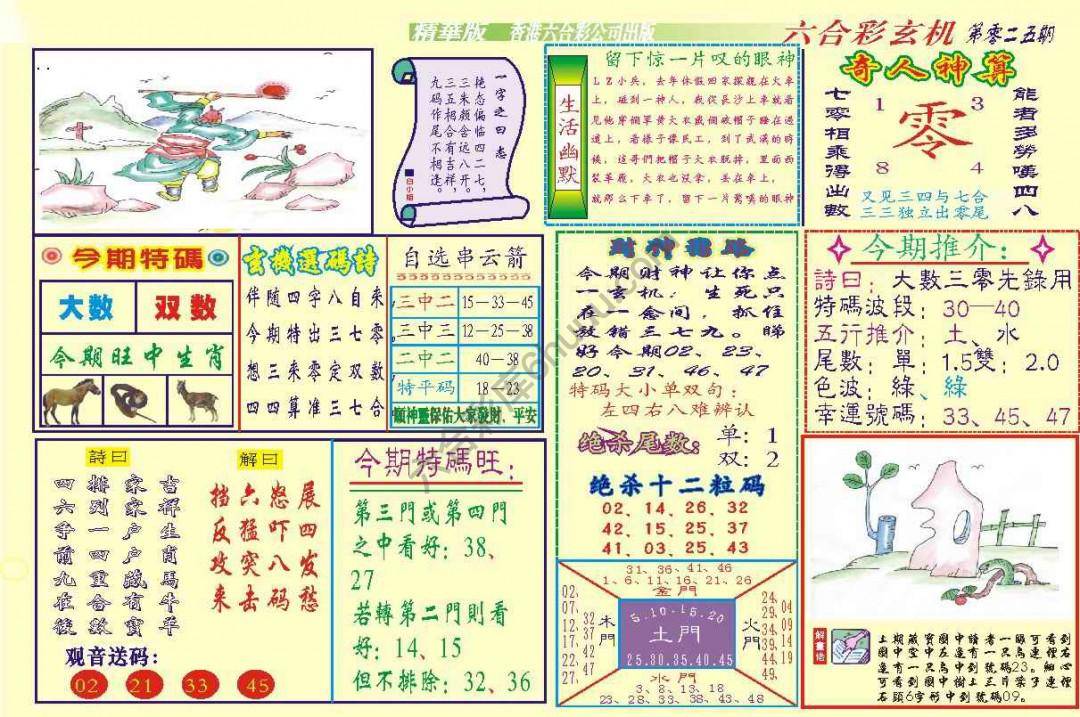 精華版 香港六合彩公司出版
六合彩玄机 第零二五期
一字之曰态
艳态偏临四二七，
三朱颇含远八开。
三五相合有吉祥，
九码作尾不相逢。
白小姐
留下惊一片叹的眼神
生活幽默
LZ小兵，去年休假回家探親在火車
上，碰到一神人，我從長沙上車就看
見他穿個軍黄大衣戴個破帽子睡在過
道上，看樣子像民工，到了武漢的時
候，這哥們把帽子大衣脱掉，里面西
装革履，大衣也没拿，丢在車上，
就那么下車了，留下一片驚嘆的眼神
奇人神算
七零相乘得出數
1 3
零
8 4
能者多勞嘆四八
又见三四与七合
三三独立出零尾
今期特碼
大数 双数
今期旺中生肖
玄機選碼詩
伴随四字八自来
今期特出三七零
想三来零定双数
四四算准三七合
自选串云箭
三中二 15—33—45
三中三 12—25—38
二中二 40—38
特平码 18—23
願神靈保佑大家發財，平安
今期财神让你点
一玄机：生死只
在一念间，抓住
放错三七九。睇
好今期02、23、
20、31、46、47
特码大小单双句：
左四右八难辨认
绝杀尾数：
单：1
双：2
绝杀十二粒码
02、14、26、32
42、15、25、37
41、03、25、43
今期推介：
詩曰：大數三零先錄用
特碼波段：30—40
五行推介：土、水
尾數：單：1.5雙：2.0
色波：綠、綠
幸運號碼：33、45、47
詩曰
吉祥生肖馬牛羊
家家户户藏有寶
排列一四重合數
四六争前九在後
解曰
展四发愁
怒吓八码
六猛突击
挡反攻来
观音送码：
02 21 33 45
今期特碼旺：
第三門或第四門
之中看好：38、
27
若轉第二門則看
好：14、15
但不排除：32、36
31、36、41、46
1、6、11、16、21、26
金門
02、07、12、17、22、27、
32、37、42、47
木門
5.10.15.20
土門
25.30.35.40.45
火門
24、29、34、39、44、49、
04、09、14、19
水門
3、8、13、18
23、28、33、38、43、48
解畫偈
上期藏寶圖中讀者一眼可看到
圖中空中左邊有一只鳥連徑右
邊有一只鳥中到號碼23。細心
可看到圖中樹上三片葉子連徑
右頭6字形中到號碼09。